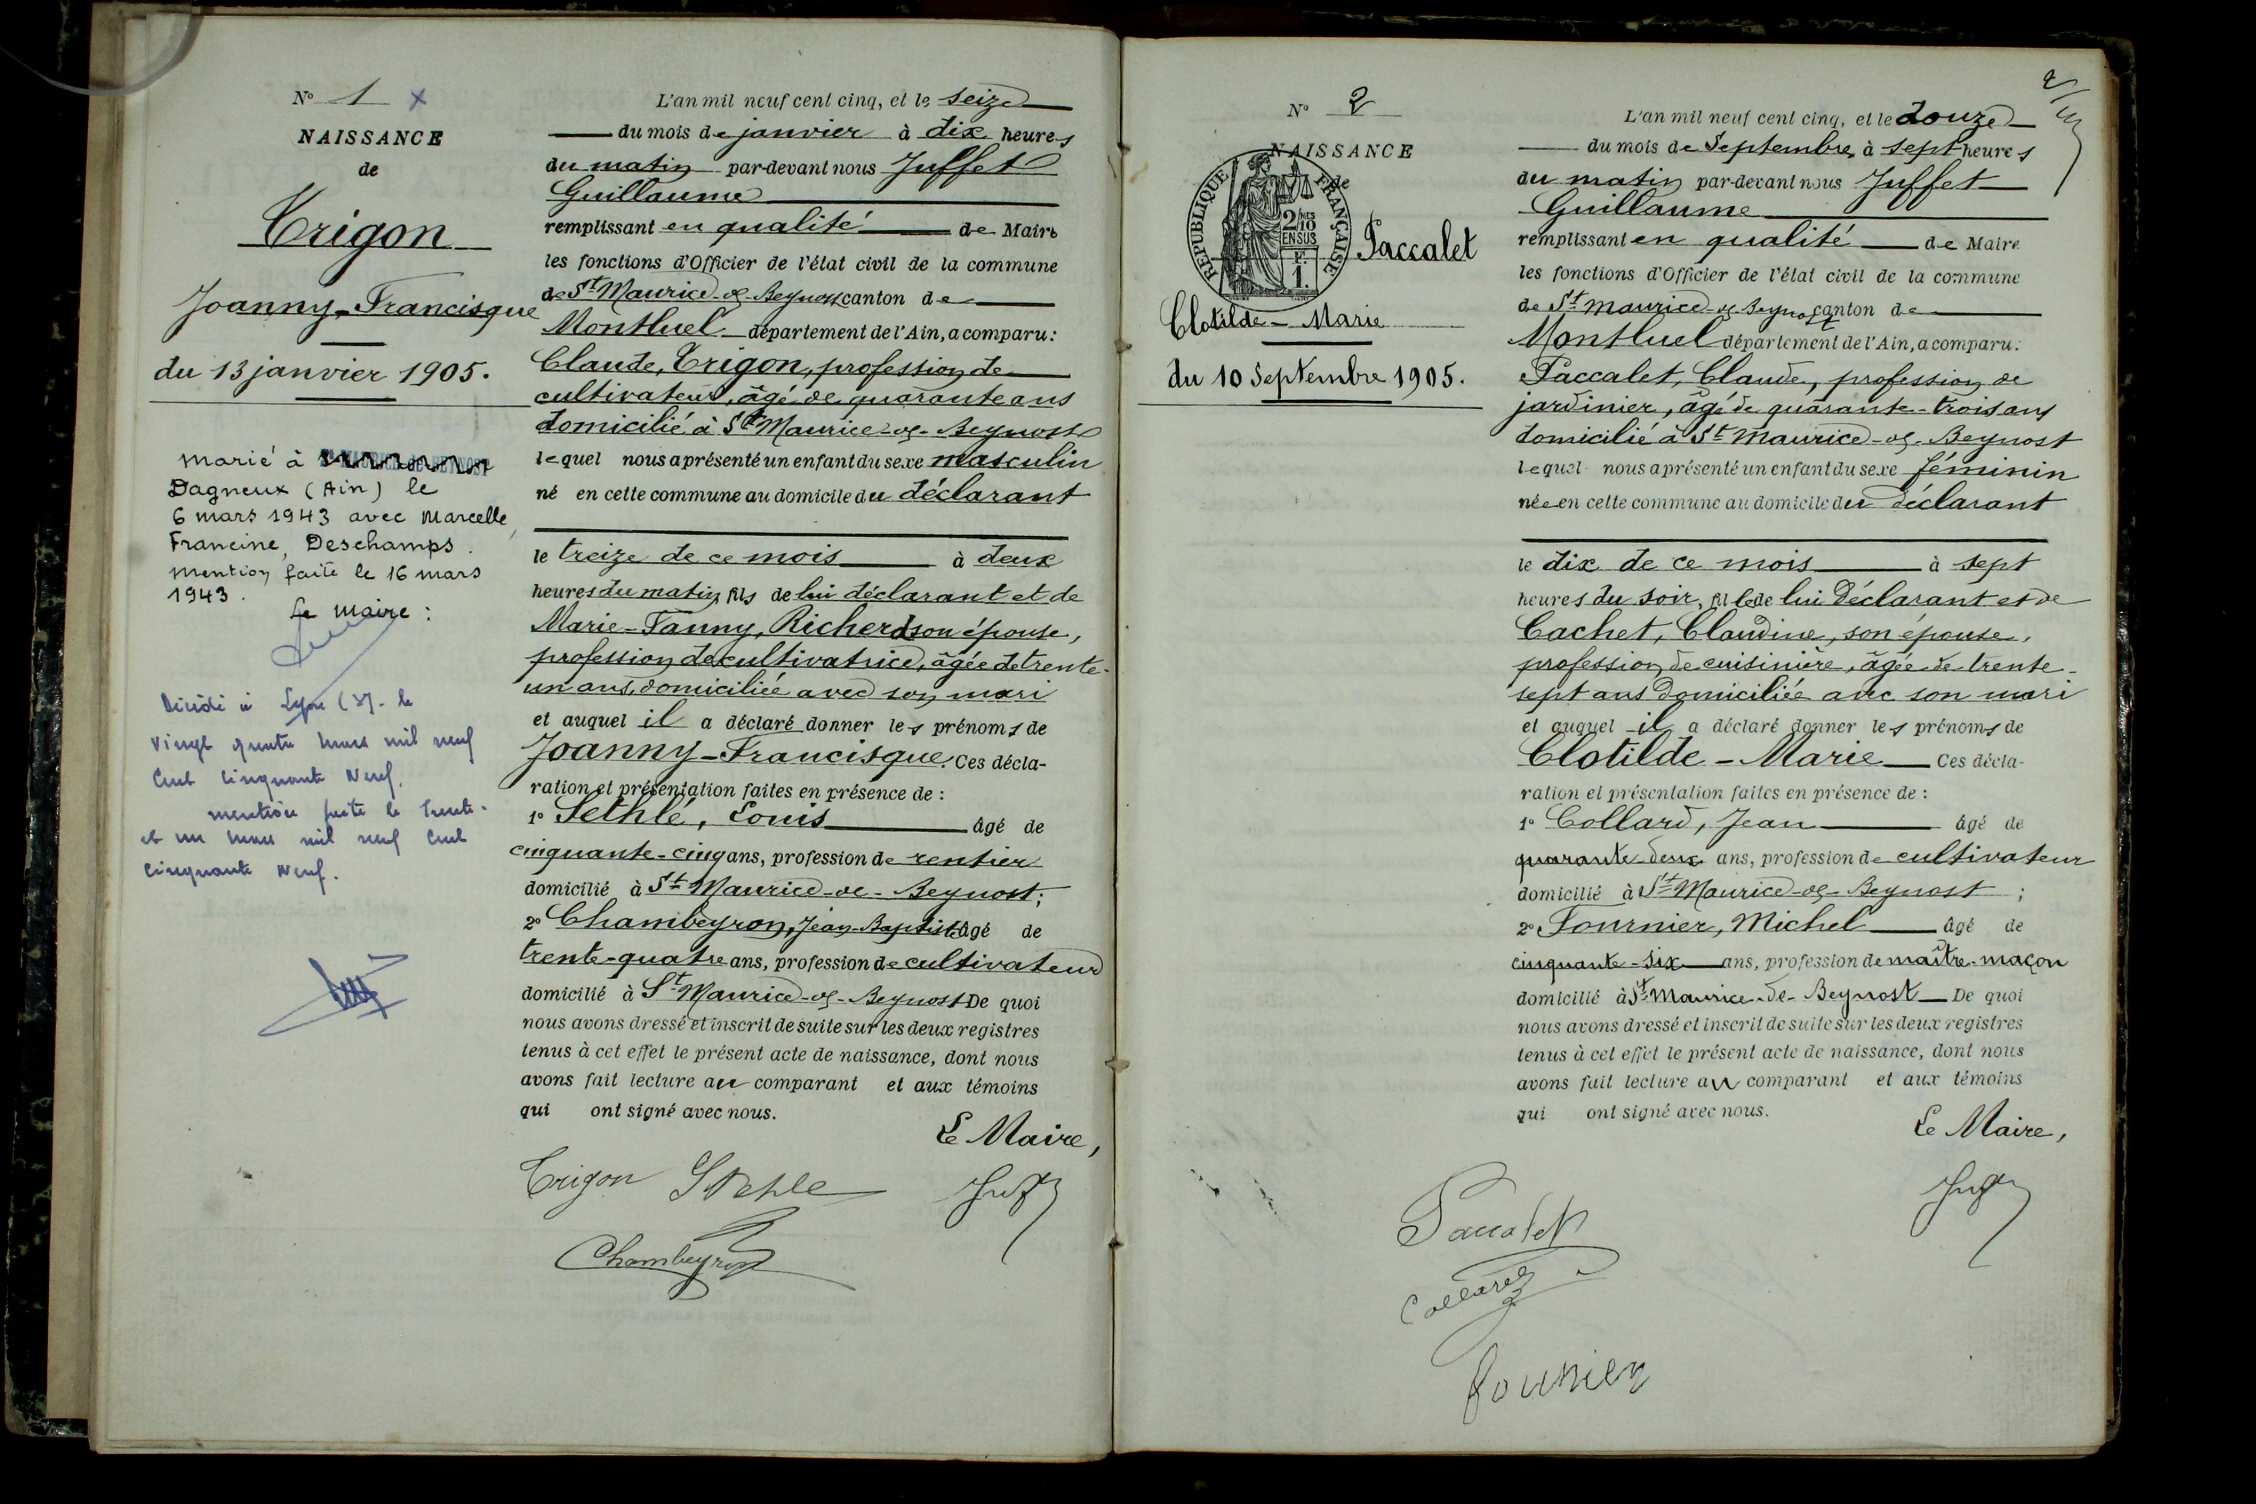 N° 1 x
NAISSANCE
de
Trigon
Joanny-Francisque
du 13 janvier 1905.
marié à St MAURICE-de-BEYNOST
Dagneux (Ain) le
6 mars 1943 avec Marcelle,
Francine, Deschamps.
mention faite le 16 mars
1943.
Le maire :
Décédé à Lyon (3) - le
vingt quatre mars mil neuf
cent cinquante neuf.
mention faite le trente-
et un mars mil neuf cent
cinquante neuf.
L'an mil neuf cent cinq, et le seize
du mois de janvier à dix heures
du matin par-devant nous Juffet
Guillaume
remplissant en qualité de Maire
les fonctions d'Officier de l'état civil de la commune
de St Maurice-de-Beynost canton de
Montluel département de l'Ain, a comparu :
Claude, Trigon, profession de
cultivateur, âgé de quarante ans
domicilié à St Maurice-de-Beynost
lequel nous a présenté un enfant du sexe masculin
né en cette commune au domicile du déclarant
le treize de ce mois à deux
heures du matin, fils de lui déclarant et de
Marie-Fanny, Richerd son épouse,
profession de cultivatrice, âgée de trente-
un ans, domiciliée avec son mari
et auquel il a déclaré donner les prénoms de
Joanny-Francisque. Ces décla-
ration et présentation faites en présence de :
1° Sethlé, Louis âgé de
cinquante-cinq ans, profession de rentier
domicilié à St Maurice-de-Beynost;
2° Chambeyron, Jean-Baptiste âgé de
trente-quatre ans, profession de cultivateur
domicilié à St Maurice-de-Beynost De quoi
nous avons dressé et inscrit de suite sur les deux registres
tenus à cet effet le présent acte de naissance, dont nous
avons fait lecture au comparant et aux témoins
qui ont signé avec nous.
Le Maire,
Trigon Stehle
Chambeyron
N° 2
NAISSANCE
de
RÉPUBLIQUE FRANÇAISE
2/10 EN SUS
F. 1.
Paccalet
Clotilde-Marie
du 10 Septembre 1905.
L'an mil neuf cent cinq, et le douze
du mois de Septembre à sept heures
du matin par-devant nous Juffet
Guillaume
remplissant en qualité de Maire
les fonctions d'Officier de l'état civil de la commune
de St Maurice-de-Beynost canton de
Montluel département de l'Ain, a comparu :
Paccalet, Claude, profession de
jardinier, âgé de quarante-trois ans
domicilié à St Maurice-de-Beynost
lequel nous a présenté un enfant du sexe féminin
née en cette commune au domicile du déclarant
le dix de ce mois à sept
heures du soir, fille de lui Déclarant et de
Cachet, Claudine, son épouse,
profession de cuisinière, âgée de trente-
sept ans Domiciliée avec son mari
et auquel il a déclaré donner les prénoms de
Clotilde-Marie Ces décla-
ration et présentation faites en présence de :
1° Collard, Jean âgé de
quarante deux ans, profession de cultivateur
domicilié à St Maurice-de-Beynost ;
2° Fournier, Michel âgé de
cinquante-six ans, profession de maître-maçon
domicilié à St Maurice-de-Beynost De quoi
nous avons dressé et inscrit de suite sur les deux registres
tenus à cet effet le présent acte de naissance, dont nous
avons fait lecture au comparant et aux témoins
qui ont signé avec nous.
Le Maire,
Paccalet
Collard
Fournier